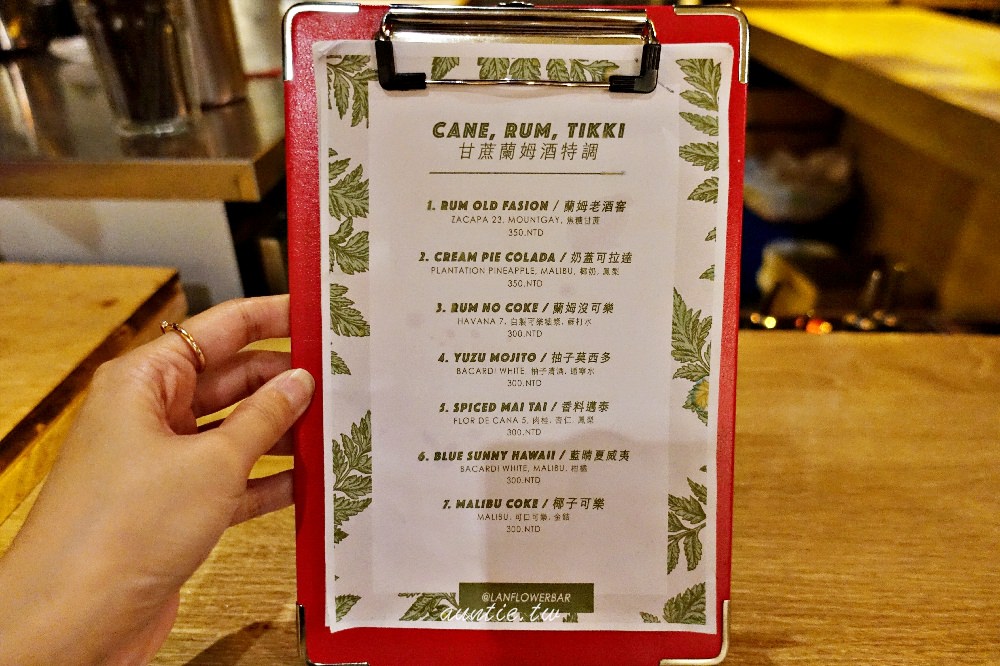 CANE, RUM, TIKKI
甘蔗蘭姆酒特調
1. RUM OLD FASION / 蘭姆老酒窖
ZACAPA 23, MOUNTGAY, 焦糖甘蔗
350.NTD
2. CREAM PIE COLADA / 奶蓋可拉達
PLANTATION PINEAPPLE, MALIBU, 椰奶, 鳳梨
350.NTD
3. RUM NO COKE / 蘭姆沒可樂
HAVANA 7, 自製可樂糖漿, 蘇打水
300.NTD
4. YUZU MOJITO / 柚子莫西多
BACARDI WHITE, 柚子清酒, 通寧水
300.NTD
5. SPICED MAI TAI / 香料邁泰
FLOR DE CANA 5, 肉桂, 杏仁, 鳳梨
300.NTD
6. BLUE SUNNY HAWAII / 藍晴夏威夷
BACARDI WHITE, MALIBU, 柑橘
300.NTD
7. MALIBU COKE / 椰子可樂
MALIBU, 可口可樂, 金桔
300.NTD
@LANFLOWERBAR
auntie.tw